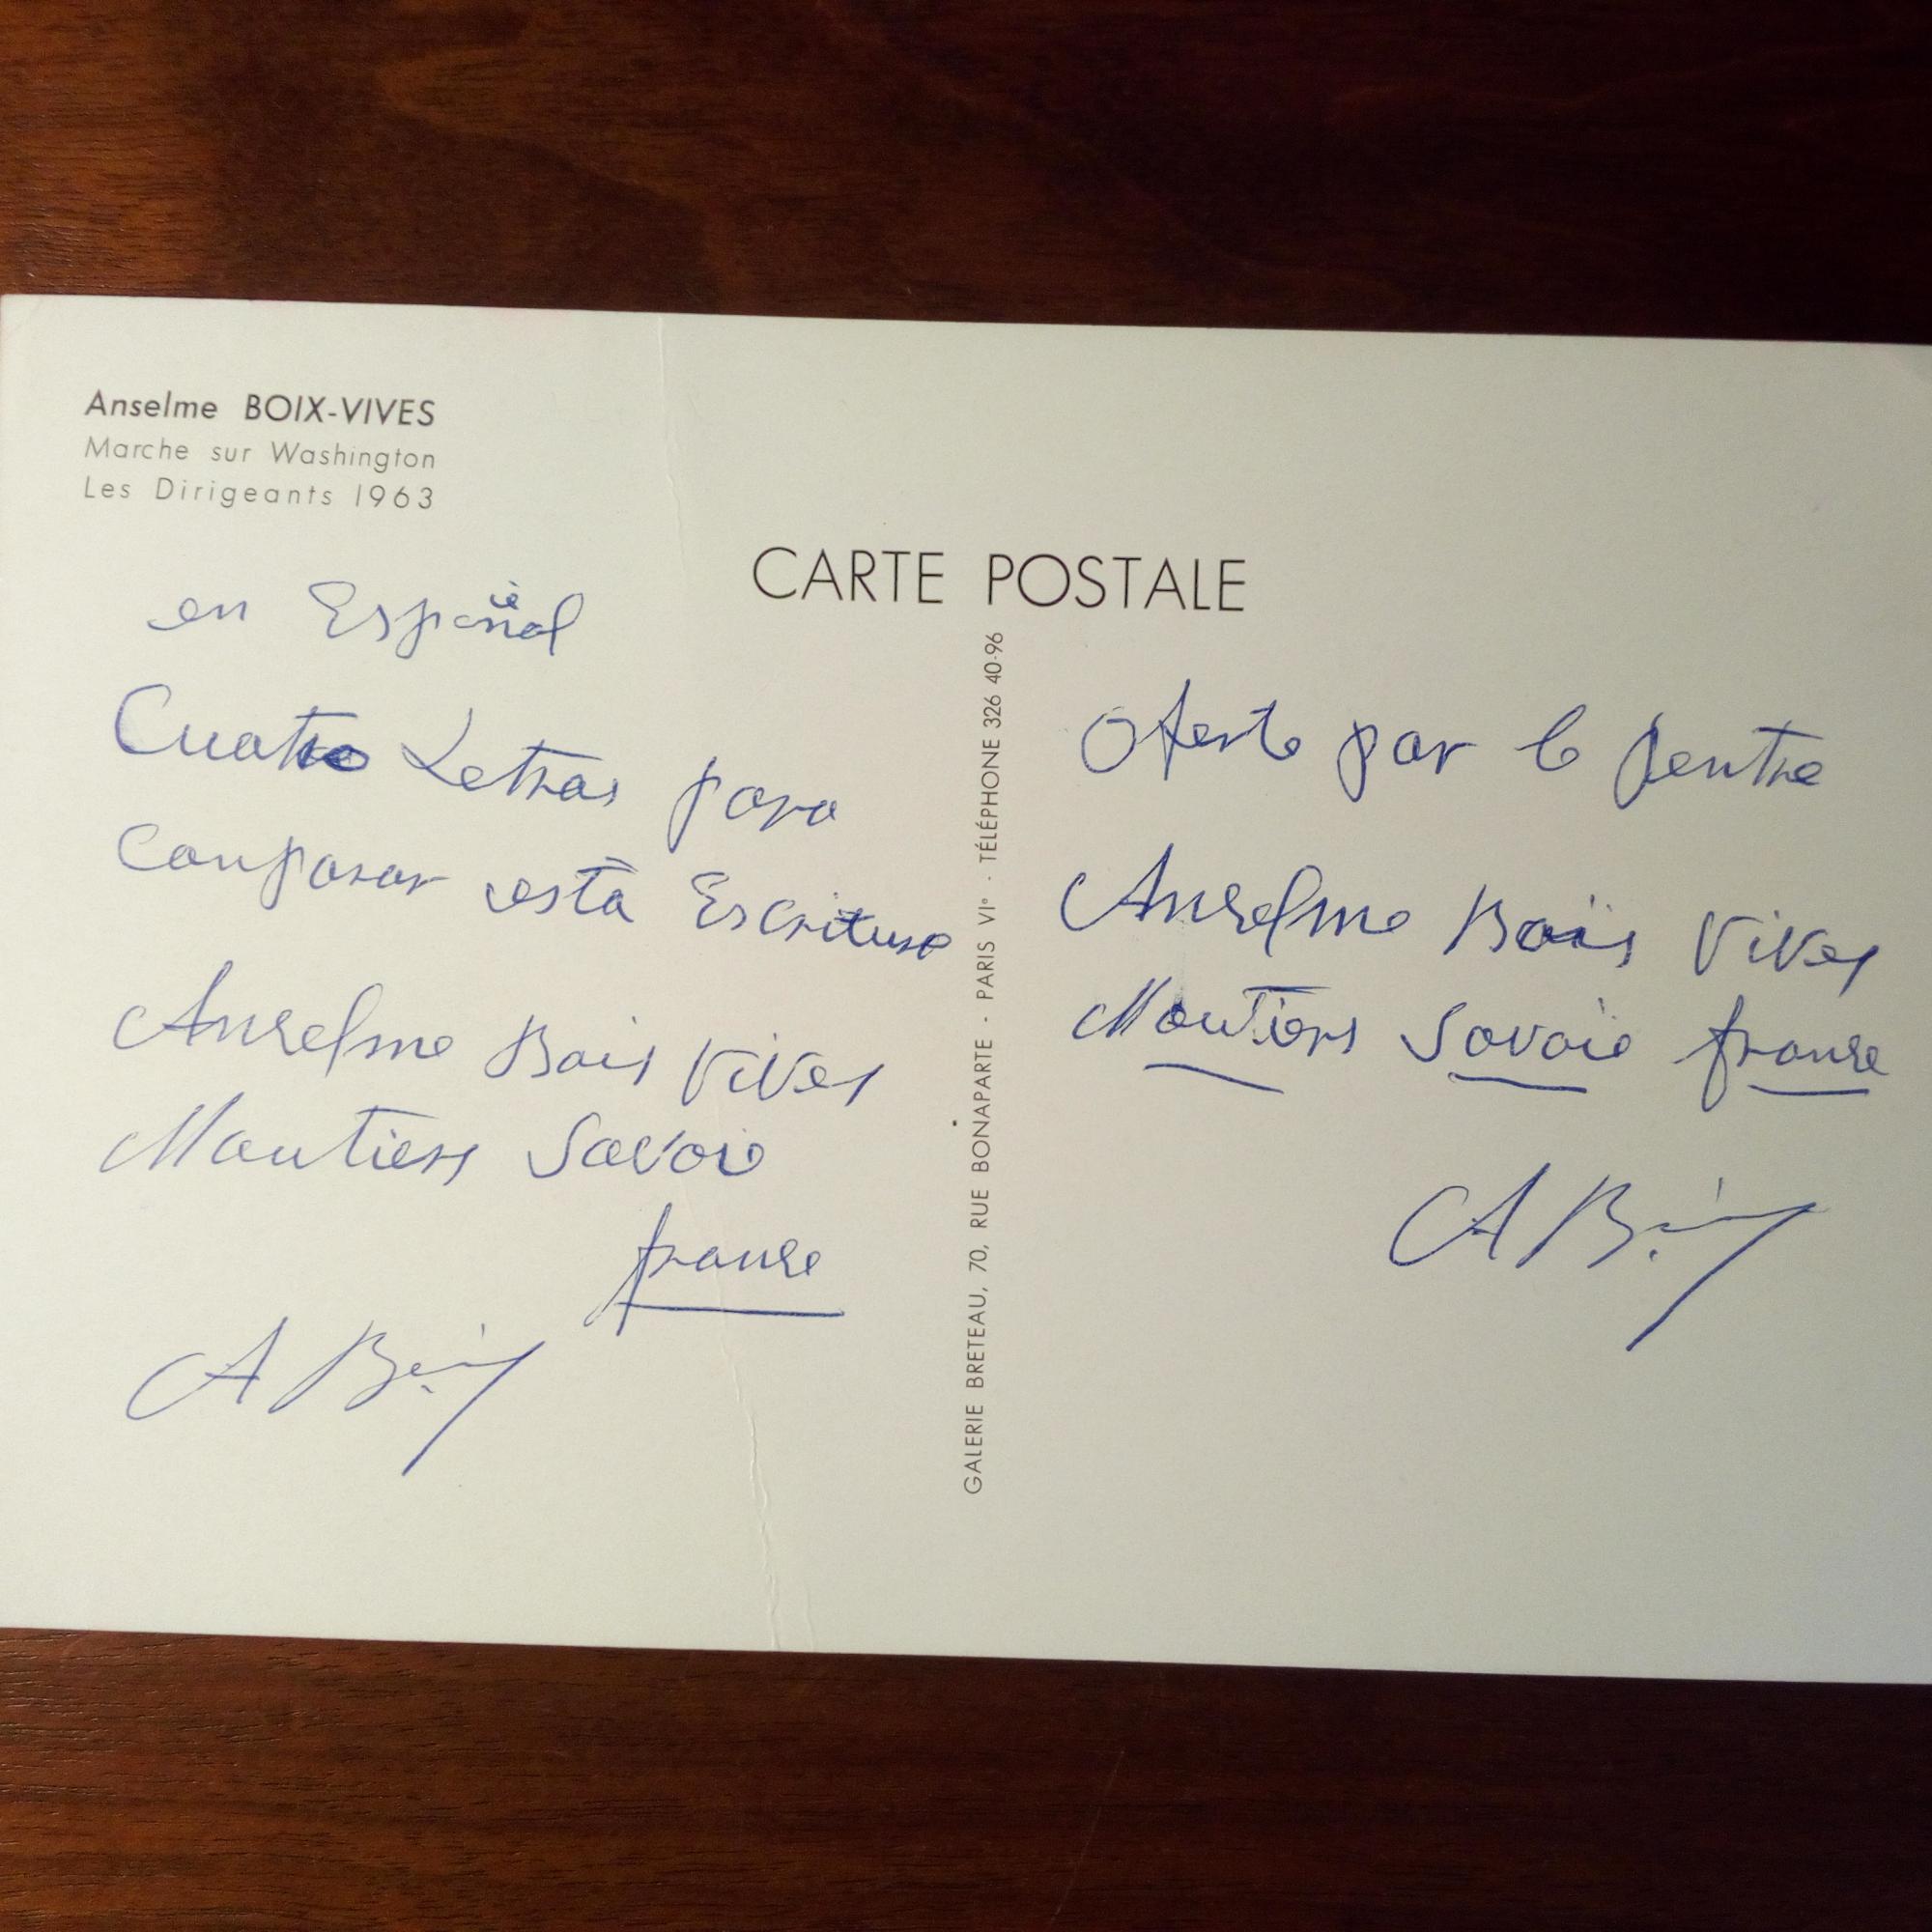 Anselme BOIX-VIVES
Marche sur Washington
Les Dirigeants 1963
CARTE POSTALE
en Español
Cuatro Letras para
Comparar esta Escritura
Anselme Bois Vives
Moutiers Savoie
france
A Bois
GALERIE BRETEAU, 70, RUE BONAPARTE - PARIS VIe - TÉLÉPHONE 326 40-96
Oferte par le pentre
Anselme Boïs Vives
Moutiers Savoie france
A Bois